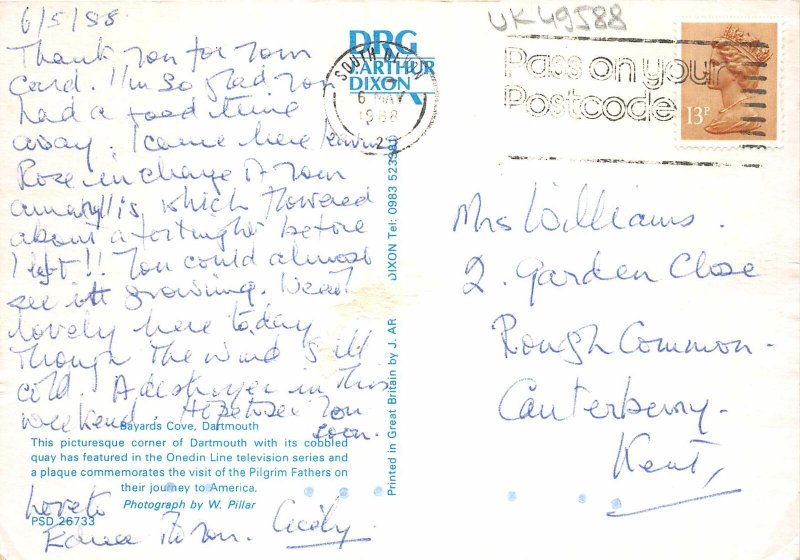 6/5/88.
Thank you for your
card. I'm so glad you
had a good time
away. I came here leaving
Rose in charge of your
amaryllis which flowered
about a fortnight before
I left!! You could almost
see it growing.
lovely here today
though the wind is
cold. A destroyer in this
weekend. Hope to see you
soon.
Love to
Cecily.
DRG
J. ARTHUR
DIXON
SOUTH DEVON
6 MAY
1988
UK49588
Pass on your
Postcode
13P
Mrs Williams.
2. Garden Close
Rough Common.
Canterbury.
Kent,
Printed in Great Britain by J. ARTHUR DIXON Tel: 0983 523381
Bayards Cove, Dartmouth
This picturesque corner of Dartmouth with its cobbled
quay has featured in the Onedin Line television series and
a plaque commemorates the visit of the Pilgrim Fathers on
their journey to America.
Photograph by W. Pillar
PSD 26733